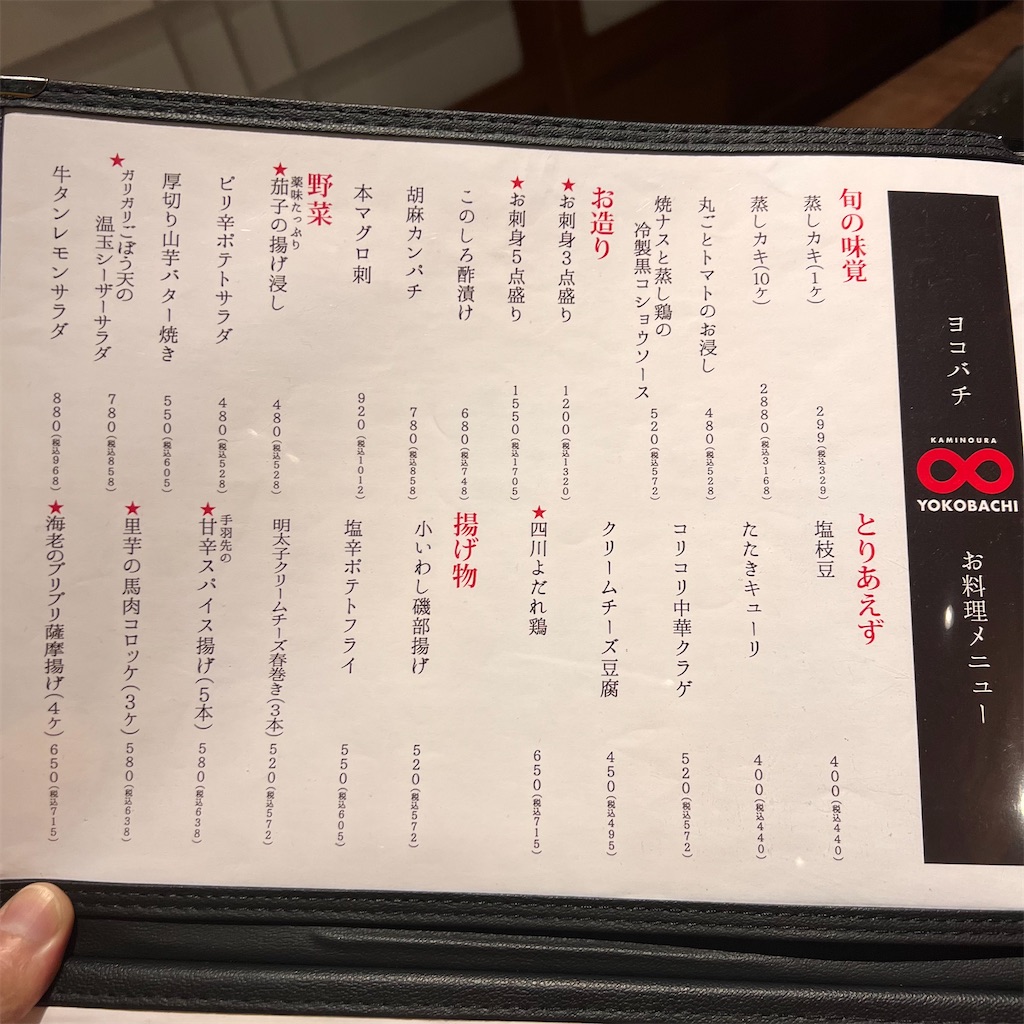 ヨコバチ
KAMINOURA
YOKOBACHI
お料理メニュー
旬の味覚
蒸しカキ(1ヶ) 299(税込329)
蒸しカキ(10ヶ) 2880(税込3168)
丸ごとトマトのお浸し 480(税込528)
焼ナスと蒸し鶏の
冷製黒コショウソース 520(税込572)
お造り
★お刺身3点盛り 1200(税込1320)
★お刺身5点盛り 1550(税込1705)
このしろ酢漬け 680(税込748)
胡麻カンパチ 780(税込858)
本マグロ刺 920(税込1012)
野菜
薬味たっぷり
★茄子の揚げ浸し 480(税込528)
ピリ辛ポテトサラダ 480(税込528)
厚切り山芋バター焼き 550(税込605)
★ガリガリごぼう天の
温玉シーザーサラダ 780(税込858)
牛タンレモンサラダ 880(税込968)
とりあえず
塩枝豆 400(税込440)
たたきキューリ 400(税込440)
コリコリ中華クラゲ 520(税込572)
クリームチーズ豆腐 450(税込495)
★四川よだれ鶏 650(税込715)
揚げ物
小いわし磯部揚げ 520(税込572)
塩辛ポテトフライ 550(税込605)
明太子クリームチーズ春巻き(3本) 520(税込572)
手羽先の
★甘辛スパイス揚げ(5本) 580(税込638)
★里芋の馬肉コロッケ(3ケ) 580(税込638)
★海老のプリプリ薩摩揚げ(4ケ) 650(税込715)